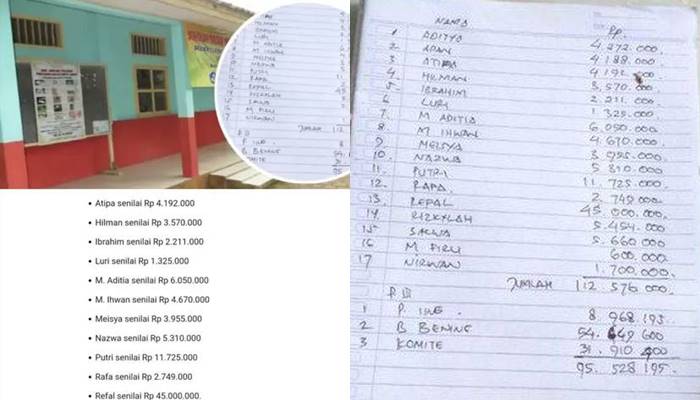 • Atipa senilai Rp 4.192.000
• Hilman senilai Rp 3.570.000
• Ibrahim senilai Rp 2.211.000
• Luri senilai Rp 1.325.000
• M. Aditia senilai Rp 6.050.000
• M. Ihwan senilai Rp 4.670.000
• Meisya senilai Rp 3.955.000
• Nazwa senilai Rp 5.310.000
• Putri senilai Rp 11.725.000
• Rafa senilai Rp 2.749.000
• Refal senilai Rp 45.000.000.
NAMA RP.
1 ADITYA 4.272.000.
2 ADAN 4.188.000.
3 ATIPA 4.192.000
4. HILMAN 3.570.000.
5. IBRAHIM 2.211.000.
6 LURI 1.325.000.
7 M ADITIA 6.050.000
8 M IHWAN 4.670.000.
9 MEISYA 3.955.000.
10. NAZWA 5.310.000.
11 PUTRI 11.725.000
12. RAPA 2.749.000
13. REPAL 45.000.000.
14. RIZKYLAH 5.454.000
15 SALWA 5.660.000
16 M. FIRLI 600.000.
17 NIRWAN 1.700.000.
JUMLAH 112.576.000.
1 P. IING. 8.968.195
2 B BENING 54.649.600
3 KOMITE 31.910.400
95.528.195